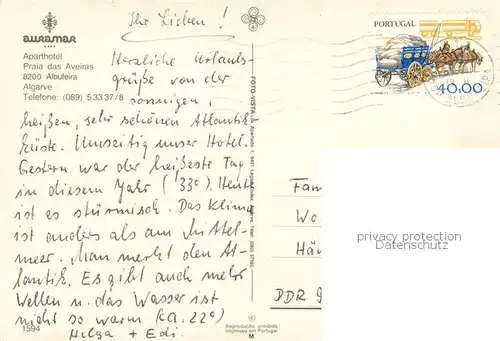 auramar
Aparthotel
Praia das Aveiras
8200 Albufeira
Algarve
Telefone: (089) 53337/8
Ihr Lieben!
Herzliche Urlaubs-
grüße von der
sonnigen,
heißen, sehr schönen Atlantik
küste. Umseitig unser Hotel.
Gestern war der heißeste Tag
in diesem Jahr (33°). Heute
ist es stürmisch. Das Klima
ist anders als am Mittel-
meer. Man merkt den At-
lantik. Es gibt auch mehr
Wellen u. das Wasser ist
nicht so warm (ca. 22°)
Helga + Edi.
1594
FOTO-VISTA
©
Reprodução proibida
Impresso em Portugal
M
PORTUGAL
40.00
Fam
Wo
Hä
DDR 9
privacy protection
Datenschutz